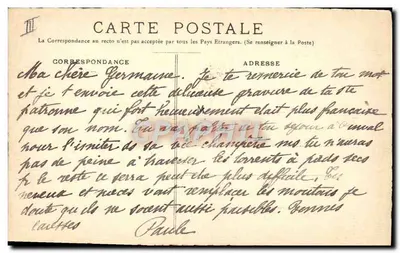 III
CARTE POSTALE
La Correspondance au recto n'est pas acceptée par tous les Pays Étrangers. (Se renseigner à la Poste)
CORRESPONDANCE
ADRESSE
Ma chère Germaine. Je te remercie de ton mot
et je t'envoie cette délicieuse gravure de ta Ste
patronne qui fort heureusement était plus française
que son nom. Tu vas
pour l'imiter de sa vie champêtre ms tu n'auras
pas de peine à traverser les torrents à pieds secs
pr le reste ce serra peut être plus difficile. Tes
neveux et nièces vont remplacer les moutons je
doute qu'ils ne soient aussi paisibles. Bonnes
caresses
Paule